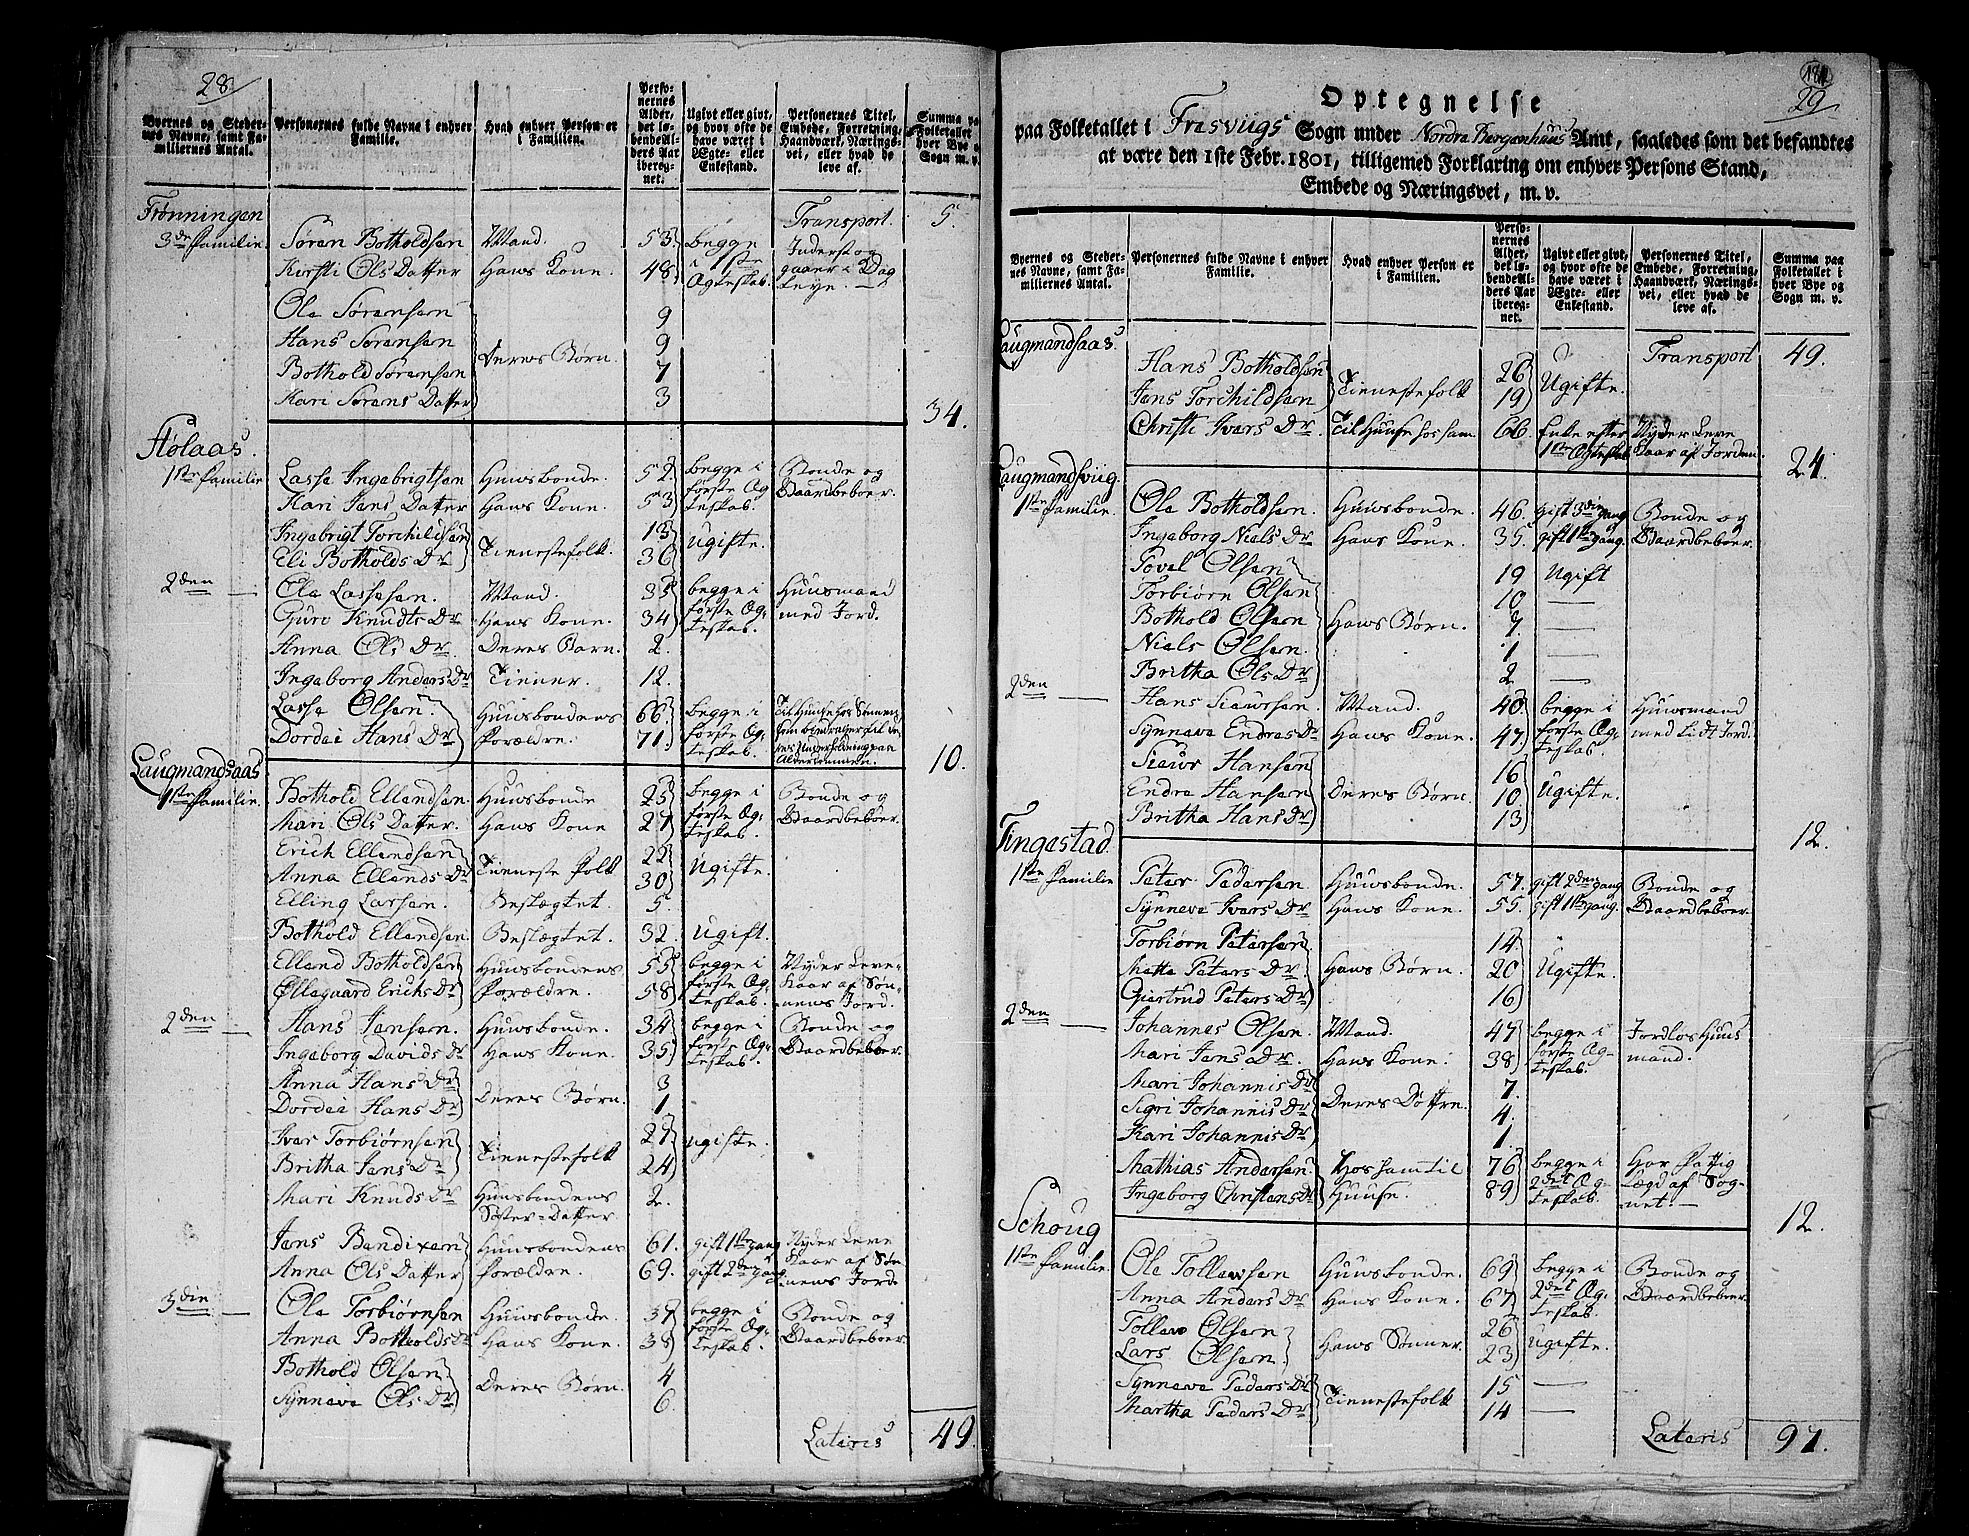 28.
Byernes og Steder-
nes Navne, samt Fa-
miliernes Antal.
Personernes fulde Navne i enhver
Familie.
Hvad enhver Person er
i Familien.
Perso-
nernes
Alder,
det lø-
bende Al-
ders Aar
ibereg-
net.
Ugivt eller givt,
og hvor ofte de
have været i
Ægte- eller
Enkestand.
Personernes Titel,
Embede, Forretning,
Haandværk, Nærings-
vei, eller hvad de
leve af.
Summa paa
Folketallet
hver Bye og
Sogn m. v.
Frønningen Transport 5.
3de Familie. Søren Botholdsen Mand. 53 begge i 1ste Ægteskab. Inderst og gaaer i Dag Leye.
Kirsti Ols Datter Hans Kone. 48
Ole Sørensen 9
Hans Sørensen Deres Børn. 9
Bothold Sørensen 7
Kari Sørens Datter 3
34.
Stølaas.
1ste Familie Lasse Ingebrigtsen Huusbonde. 52. begge i første Ægteskab. Bonde og Gaardbeboer.
Kari Jens Datter Hans Kone. 53
Ingebrigt Torchildsen Tienestefolk. 13 Ugifte.
Eli Botholds Dr 36
2den Ole Lassesen. Mand. 35 begge i første Ægteskab. Huusmand med Jord.
Guro Knudts Dr Hans Kone. 34
Anna Ols Dr Deres Barn. 2.
Ingeborg Anders Dr Tiener. 12.
Lasse Olsen. Huusbondens Forældre. 66. begge i første Ægteskab. Til Huuse hos Sønnen
Dordei Hans Dr 71.
10.
Laugmandsaas
1ste Familie. Bothold Ellendsen Huusbonde 25 begge i første Ægteskab. Bonde og Gaardbeboer.
Mari Ols Datter. Hans Kone 27
Erich Ellendsen Tieneste folk 22 Ugifte.
Anna Ellends Dr 30
Elling Larsen. Beslægtet. 5.
Bothold Ellendsen. Beslægtet. 32. Ugift.
Ellend Botholdsen Huusbondens Forældre. 55 begge i første Ægteskab. Nyder Leve-Kaar af Sønnens Jord.
Øllegaard Erichs Dr 58
2den Hans Jensen. Huusbonde. 34 begge i første Ægteskab. Bonde og Gaardbeboer.
Ingeborg Davids Dr Hans Kone. 35
Anna Hans Dr Deres Børn. 3
Dordei Hans Dr 1
Iver Torbiørnsen Tienestefolk 27 Ugifte.
Britha Jens Dr 24
Mari Knuds Dr Huusbondens Søster-Datter. 2.
Jens Bendixen Huusbondens Forældre. 61. gift 1ste gang Nyder Leve Kaar af Sønnens Jord
Anna Ols Datter 69. gift 2den gang
3die Ole Torbiørnsen Huusbonde. 37 begge i første Ægteskab. Bonde og Gaardbeboer
Anna Botholds Dr Hans Kone. 38
Bothold Olsen Deres Børn. 4
Synneve Ols Dr 6.
Lateris 49.
29
Optegnelse
paa Folketallet i Fresviigs Sogn under Nordre Bergenhuus Amt, saaledes som det befandtes
at være den 1ste Febr. 1801, tilligemed Forklaring om enhver Persons Stand,
Embede og Næringsvei, m. v.
Byernes og Steder-
nes Navne, samt Fa-
miliernes Antal.
Personernes fulde Navne i enhver
Familie.
Hvad enhver Person er
i Familien.
Perso-
nernes
Alder,
det lø-
bende Al-
ders Aar
ibereg-
net.
Ugivt eller givt,
og hvor ofte de
have været i
Ægte- eller
Enkestand.
Personernes Titel,
Embede, Forretning,
Haandværk, Nærings-
vei, eller hvad de
leve af.
Summa paa
Folketallet i
hver Bye og
Sogn m. v.
Laugmandsaas. Transport 49.
Hans Botholdsen Tienestefolk 26 Ugifte.
Jens Torchildsen 19
Christi Ivers Dr. Til Huuse hos ham. 66. Enke efter 1ste Ægteskab Nyder Leve Kaar af Jorden.
24.
Laugmandsviig.
1ste Familie. Ole Botholdsen. Huusbonde. 46. gift 3die gang Bonde og Gaardbeboer.
Ingeborg Niels Dr Hans Kone. 35. gift 1ste gang.
Povel Olsen Hans Børn. 19 Ugift
Torbiørn Olsen 10 —
Bothold Olsen 7. —
Niels Olsen. 1 —
Britha Ols Dr 2 —
2den Hans Siursen Mand. 40. begge i første Ægteskab. Huusmand med Lidt Jord.
Synneve Endres Dr Hans Kone. 47
Siuur Hansen Deres Børn. 16 Ugifte.
Endre Hansen 10
Britha Hans Dr 13
12.
Tingestad.
1ste Familie Peter Pedersen Huusbonde. 57. gift 2den gang Bonde og Gaardbeboer.
Synneve Ivers Dr Hans Kone. 55. gift 1ste gang.
Torbiørn Petersen Hans Børn. 14.
Mette Peters Dr 20 Ugifte.
Giertrud Peters Dr 16
2den Johannes Olsen. Mand. 47 begge i første Ægteskab. Jordløs Huusmand.
Mari Jens Dr. Hans Kone. 38
Mari Johannis Dr Deres Døttre. 7.
Sigri Johannis Dr 4.
Kari Johannis Dr 1.
Mathias Andersen Hos ham til Huuse. 76 begge i 2det Ægteskab. Har fattig Lægd af Sognet.
Ingeborg Christens Dr 89
12.
Schoug
1ste Familie. Ole Tollevsen Huusbonde. 69 begge i 2det Ægteskab. Bonde og Gaardbeboer.
Anna Anders Dr Hans Kone. 67
Tollev Olsen Hans Sønner 26 Ugifte.
Lars Olsen. 23
Synneve Peders Dr Tienestefolk 15 —
Martha Peders Dr 14 —
Lateris 97.